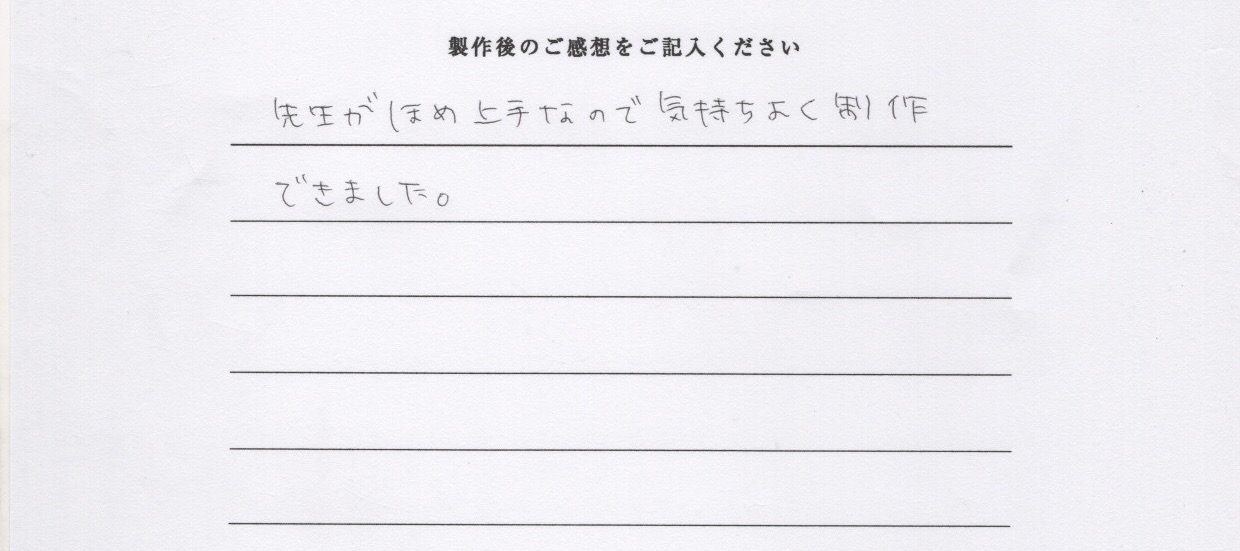 製作後のご感想をご記入ください
先生がほめ上手なので気持ちよく制作
できました。